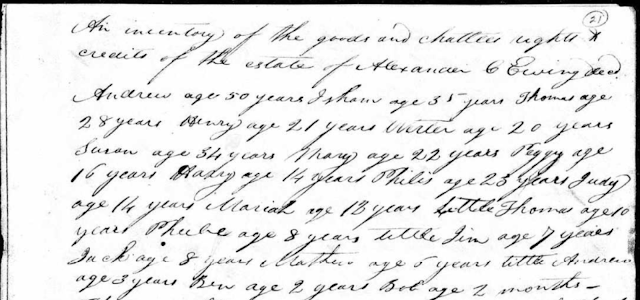 21
An inventory of the goods and chattles rights &
credits of the estate of Alexander C Ewing decd
Andrew age 50 years Isham age 35 years Thomas age
28 years Henry age 21 years age 20 years
Susan age 34 years Mary age 22 years Peggy age
16 years age 14 years Philis age 23 years Judy
age 14 years Mariah age 13 years little Thomas age 10
years Phebe age 8 years little Jim age 7 years
Jack age 8 years Mathew age 5 years little Andrew
age 3 years Ben age 2 years Bob age 2 months